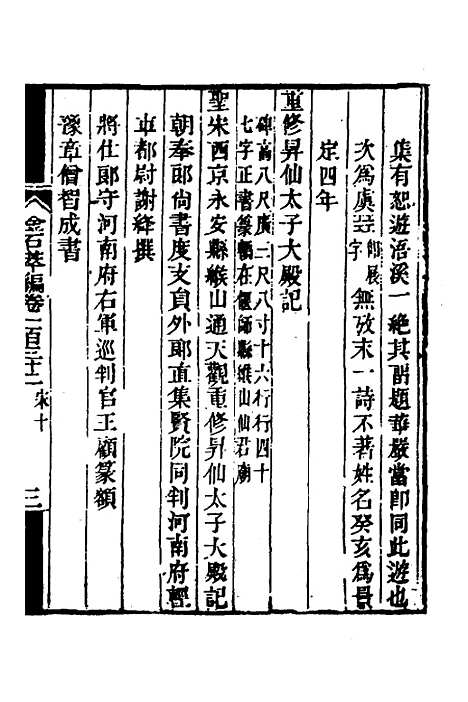 集有恕遊浯溪一絶其詶題華嚴當即同此遊也
次爲虞芸字師展無攷末一詩不著姓名癸亥爲景
定四年
重修昇仙太子大殿記
碑高八尺廣二尺八寸十六行行四十
七字正書篆額在偃師縣緱山仙君廟
聖宋西京永安縣緱山通天觀重修昇仙太子大殿記
朝奉郎尚書度支員外郎直集賢院同判河南府輕
車都尉謝絳撰
將仕郎守河南府右軍巡判官王顧篆額
豫章僧智成書
金石萃編卷一百三十二 宋十 三